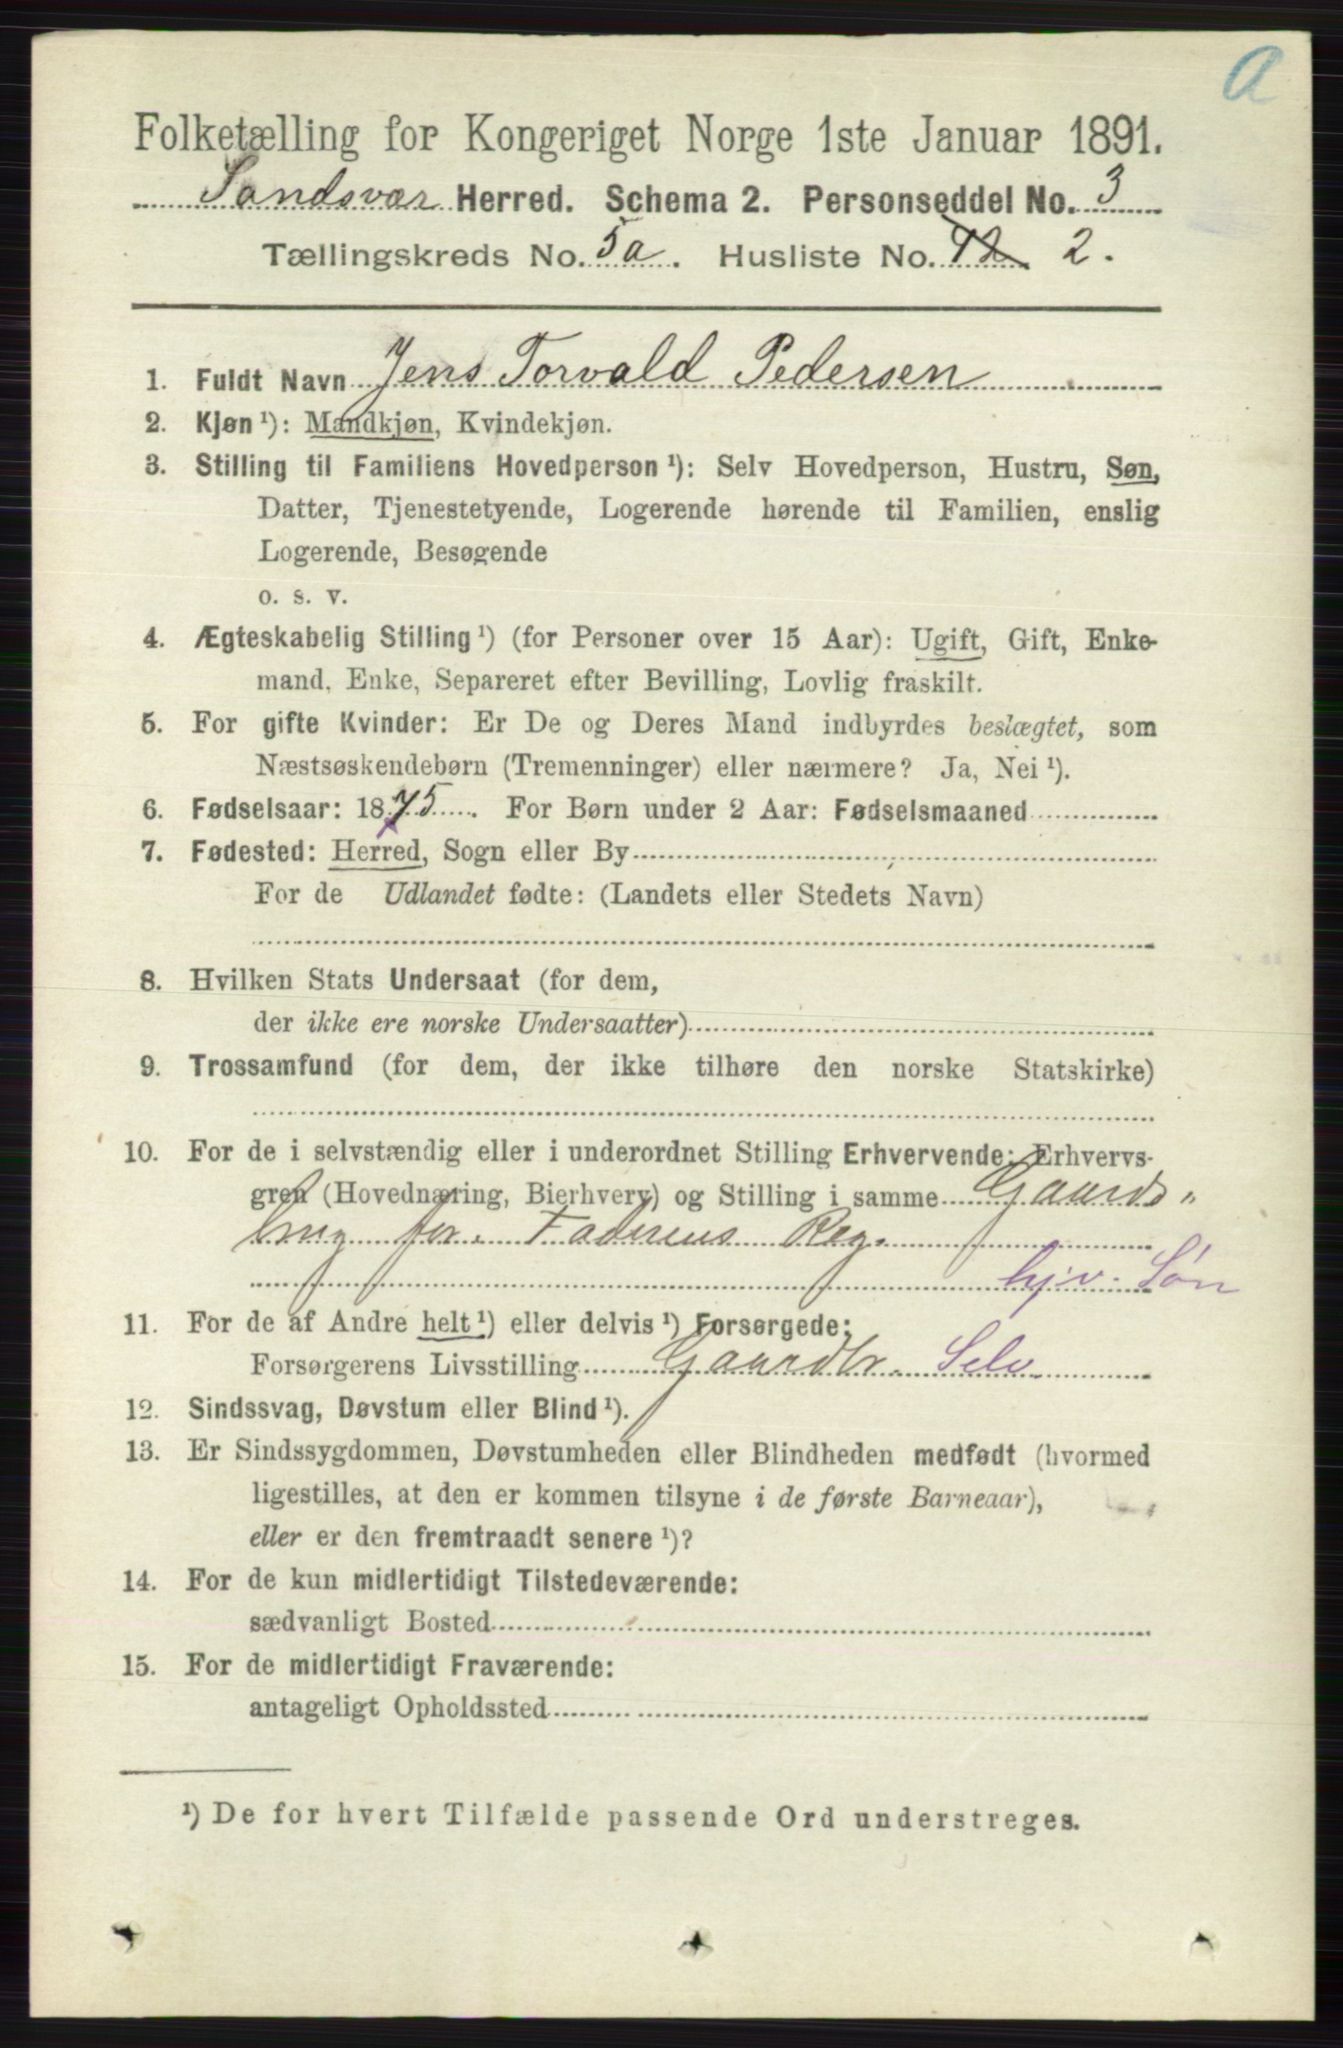 a
Folketælling for Kongeriget Norge 1ste Januar 1891.
Sandsvær Herred. Schema 2. Personseddel No. 3
Tællingskreds No. 5a. Husliste No. 12 2.
1. Fuldt Navn Jens Torvald Pedersen
2. Kjøn ¹): Mandkjøn, Kvindekjøn.
3. Stilling til Familiens Hovedperson ¹): Selv Hovedperson, Hustru, Søn,
Datter, Tjenestetyende, Logerende hørende til Familien, enslig
Logerende, Besøgende
o. s. v.
4. Ægteskabelig Stilling ¹) (for Personer over 15 Aar): Ugift, Gift, Enke-
mand, Enke, Separeret efter Bevilling, Lovlig fraskilt.
5. For gifte Kvinder: Er De og Deres Mand indbyrdes beslægtet, som
Næstsøskendebørn (Tremenninger) eller nærmere? Ja, Nei ¹).
6. Fødselsaar: 1875. For Børn under 2 Aar: Fødselsmaaned
7. Fødested: Herred, Sogn eller By
For de Udlandet fødte: (Landets eller Stedets Navn)
8. Hvilken Stats Undersaat (for dem,
der ikke ere norske Undersaatter)
9. Trossamfund (for dem, der ikke tilhøre den norske Statskirke)
10. For de i selvstændig eller i underordnet Stilling Erhvervende: Erhvervs-
gren (Hovednæring, Bierhverv) og Stilling i samme Gaards„
brug for Faderens Reg.
hjv. Søn
11. For de af Andre helt ¹) eller delvis ¹) Forsørgede:
Forsørgerens Livsstilling Gaardbr. Selv
12. Sindssvag, Døvstum eller Blind ¹).
13. Er Sindssygdommen, Døvstumheden eller Blindheden medfødt (hvormed
ligestilles, at den er kommen tilsyne i de første Barneaar),
eller er den fremtraadt senere ¹)?
14. For de kun midlertidigt Tilstedeværende:
sædvanligt Bosted
15. For de midlertidigt Fraværende:
antageligt Opholdssted
¹) De for hvert Tilfælde passende Ord understreges.